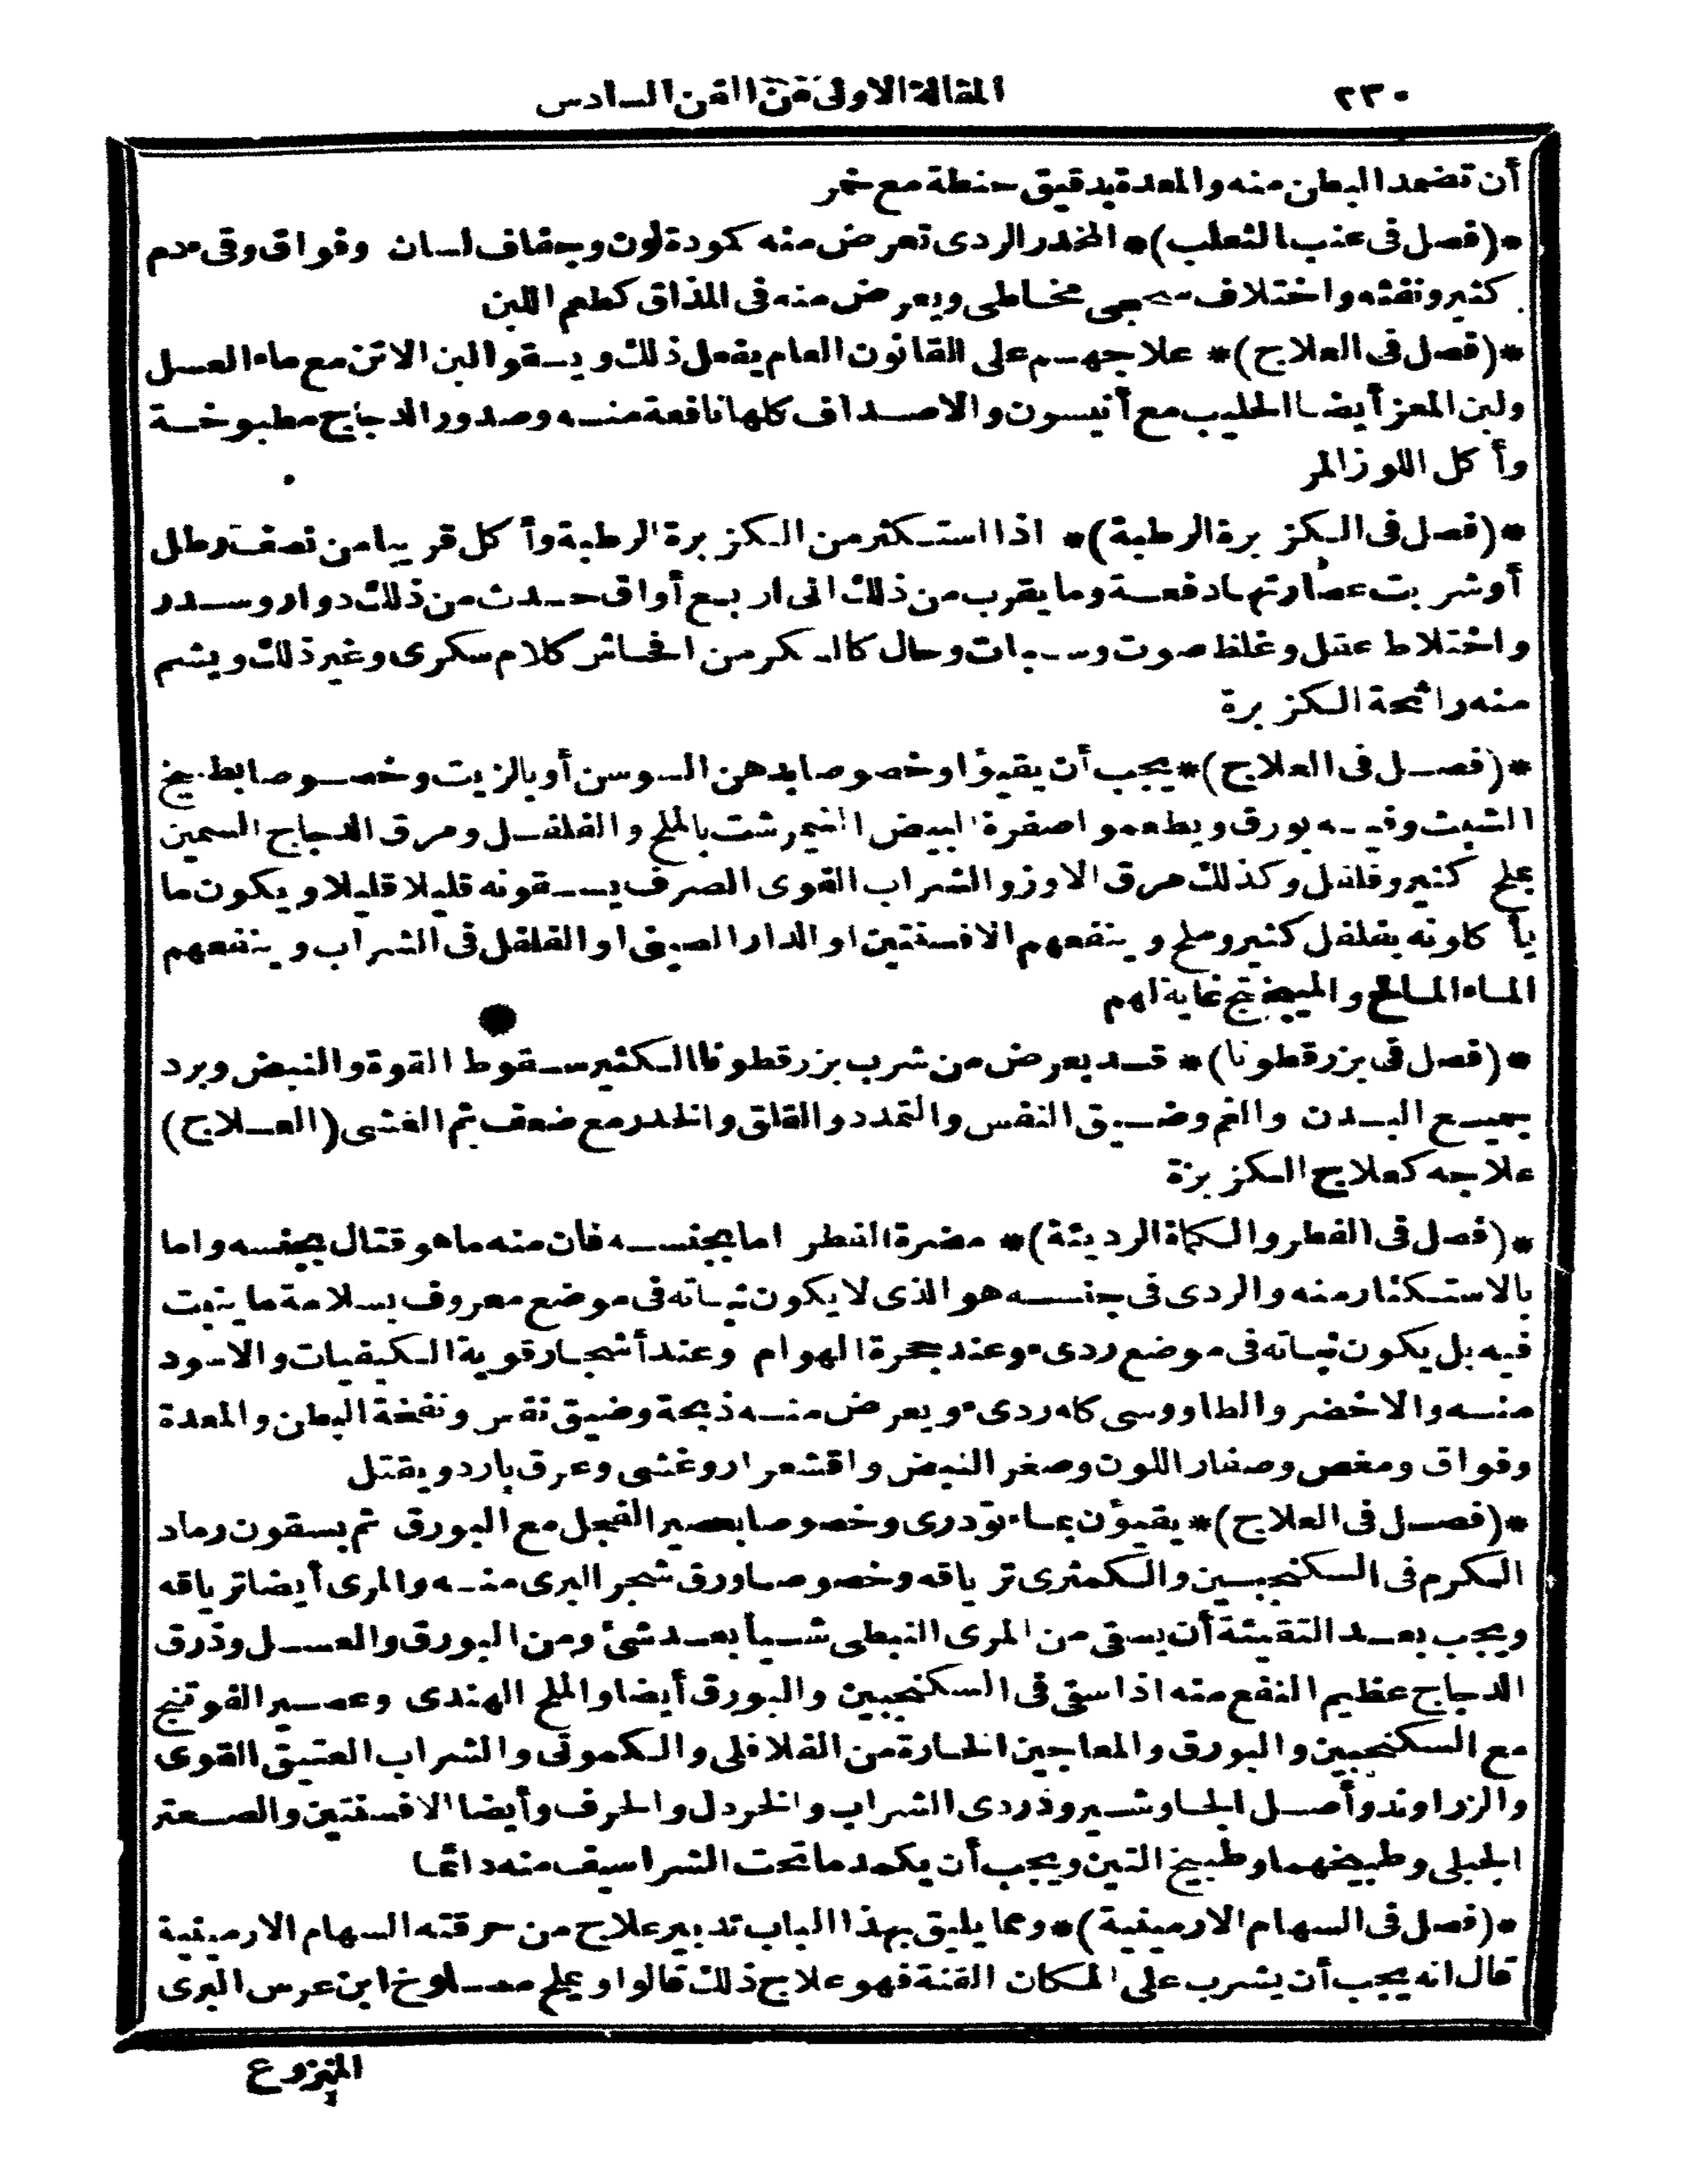 ٢٣٠
المقالة الاولى من الفن السادس
أن تضمد البطن منه والمعدة بدقيق حنطة مع خمر
*(فصل فى عنب الثعلب)* المخدر الردى تعرض منه كمودة لون وجفاف لسان وفواق وقىء دم
كثير ونفثه واختلاف سحجى مخاطى ويعرض منه فى المذاق كطعم اللبن
*(فصل فى العلاج)* علاجهم على القانون العام يفعل ذلك ويسقوا لبن الاتن مع ماء العسل
ولبن المعز أيضا الحليب مع أنيسون والاصداف كلها نافعة منه وصدور الدجاج مطبوخة
وأكل اللوز المر
*(فصل فى الكزبرة الرطبة)* اذا استكثر من الكزبرة الرطبة وأكل قريبا من نصف رطل
أو شربت عصارتها دفعة وما يقرب من ذلك الى اربع أواق حدث من ذلك دوار وسدر
واختلاط عقل وغلظ صوت وسبات وحال كالسكر من افحاش كلام سكرى وغير ذلك ويشم
منه رائحة الكزبرة
*(فصل فى العلاج)* يجب أن يقيؤا وخصوصا بدهن السوسن أو بالزيت وخصوصا بطبيخ
الشبث وفيه بورق ويطعموا صفرة البيض النيمرشت بالملح والفلفل ومرق الدجاج السمين
بملح كثير وفلفل وكذلك مرق الاوز والشراب القوى الصرف يسقونه قليلا قليلا ويكون ما
يأكلونه بفلفل كثير وملح وينفعهم الافسنتين او الدارالصينى او الفلفل فى الشراب وينفعهم
الماء المالح والميبختج غاية لهم
*(فصل فى بزرقطونا)* قد يعرض من شرب بزرقطونا الكثير سقوط القوة والنبض وبرد
جميع البدن والغم وضيق النفس والتمدد والقلق والخدر مع ضعف ثم الغشى (العلاج)
علاجه كعلاج الكزبرة
*(فصل فى الفطر والكماة الرديئة)* مضرة الفطر اما بجنسه فان منه ما هو قتال بجنسه واما
بالاستكثار منه والردى فى جنسه هو الذى لا يكون نباته فى موضع معروف بسلامة ما ينبت
فيه بل يكون نباته فى موضع ردىء وعند جحرة الهوام وعند أشجار قوية الكيفيات والاسود
منه والاخضر والطاووسى كله ردىء ويعرض منه ذبحة وضيق نفس ونفخة البطن والمعدة
وفواق ومغص وصفار اللون وصغر النبض واقشعرار وغشى وعرق بارد ويقتل
*(فصل فى العلاج)* يقيؤن بماء تودرى وخصوصا بعصير الفجل مع البورق ثم يسقون رماد
الكرم فى السكنجبين والكمثرى ترياقه وخصوصا ورق شجر البرى منه والمرى أيضا ترياقه
ويجب بعد التقيئة أن يسقى من المرى النبطى شيأ بعد شئ ومن البورق والعسل وذرق
الدجاج عظيم النفع منه اذا سقى فى السكنجبين والبورق أيضا والملح الهندى وعصير الفوتنج
مع السكنجبين والبورق والمعاجين الحارة من الفلافلى والكمونى والشراب العتيق القوى
والزراوند وأصل الجاوشير ودردى الشراب والخردل والحرف وأيضا الافسنتين والصعتر
الجبلى وطبيخهما وطبيخ التين ويجب أن يكمد ما تحت الشراسيف منه دائما
*(فصل فى السهام الارمينية)* ومما يليق بهذا الباب تدبير علاج من حرقته السهام الارمينية
قال انه يجب أن يشرب على المكان القنة فهو علاج ذلك قالوا ويملح مسلوخ ابن عرس البرى
المنزوع